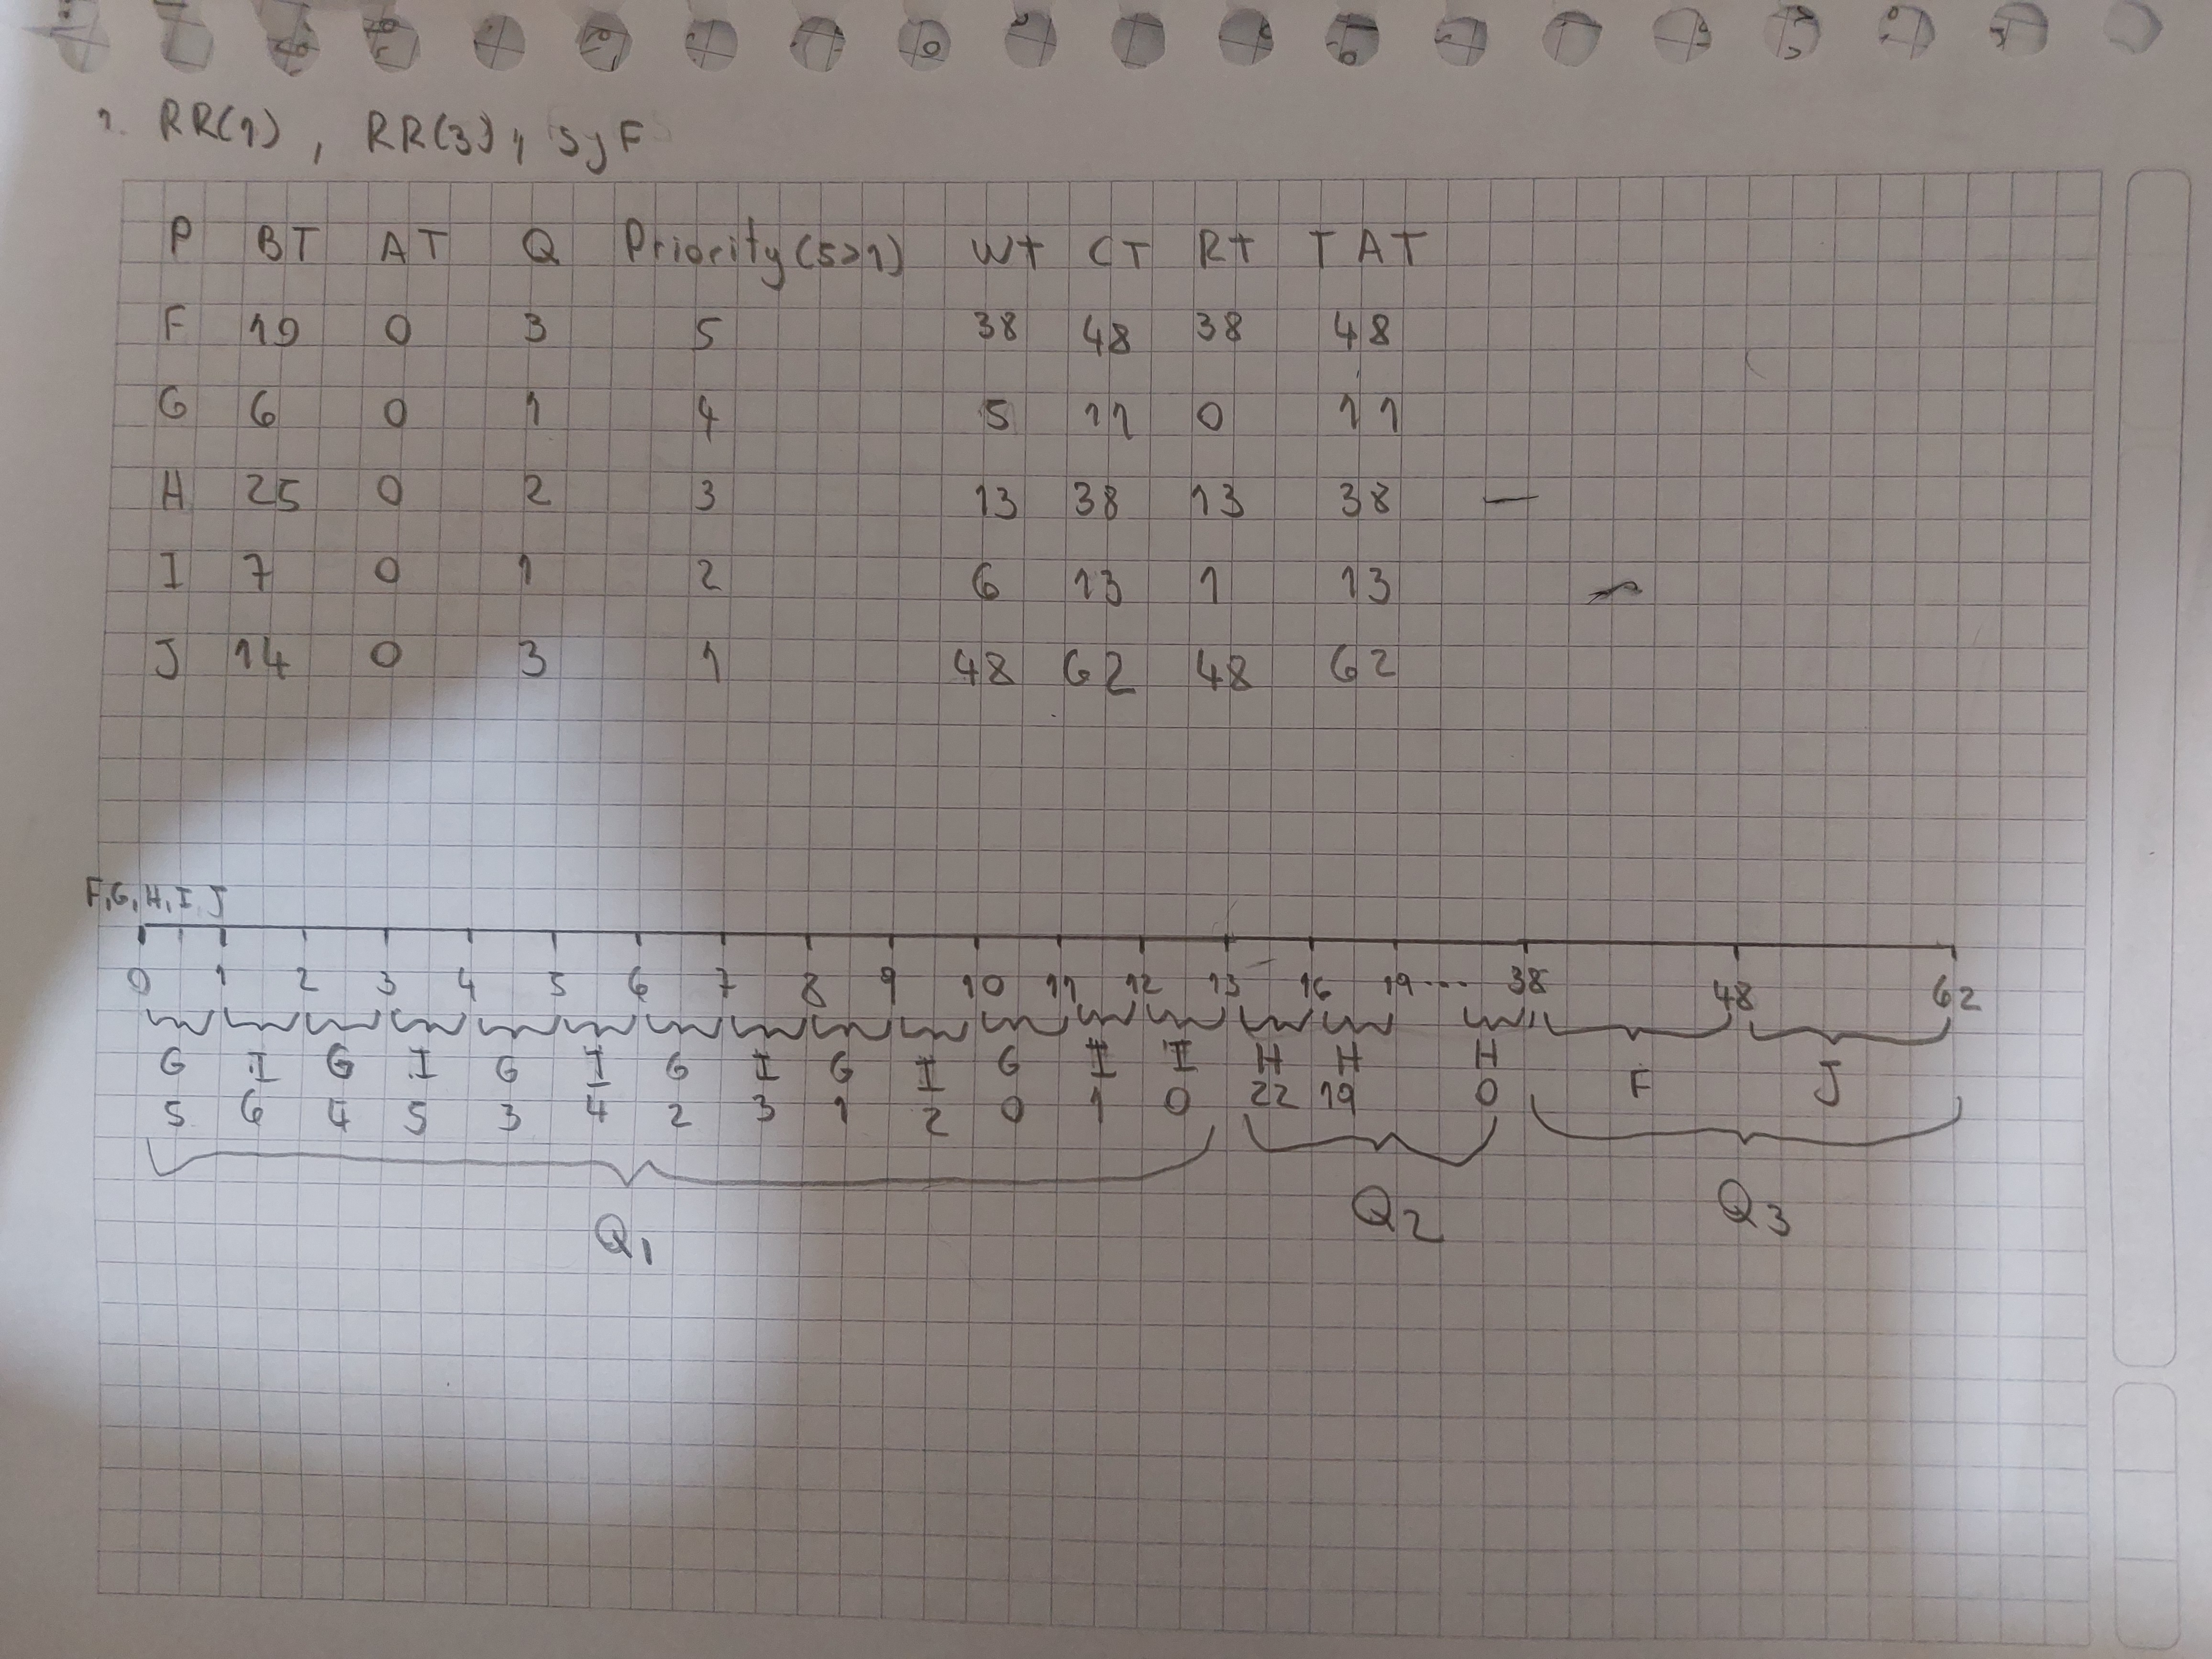 1. RR(1), RR(3), SJF
P BT AT Q Priority(5>1) WT CT RT TAT
F 10 0 3 5 38 48 38 48
G 6 0 1 4 5 11 0 11
H 25 0 2 3 13 38 13 38 —
I 7 0 1 2 6 13 1 13
J 14 0 3 1 48 62 48 62
F,G,H,I,J
0 1 2 3 4 5 6 7 8 9 10 11 12 13 16 19... 38 48 62
G I G I G I G I G I G I I H H H F J
5 6 4 5 3 4 2 3 1 2 0 1 0 22 19 0
Q1 Q2 Q3